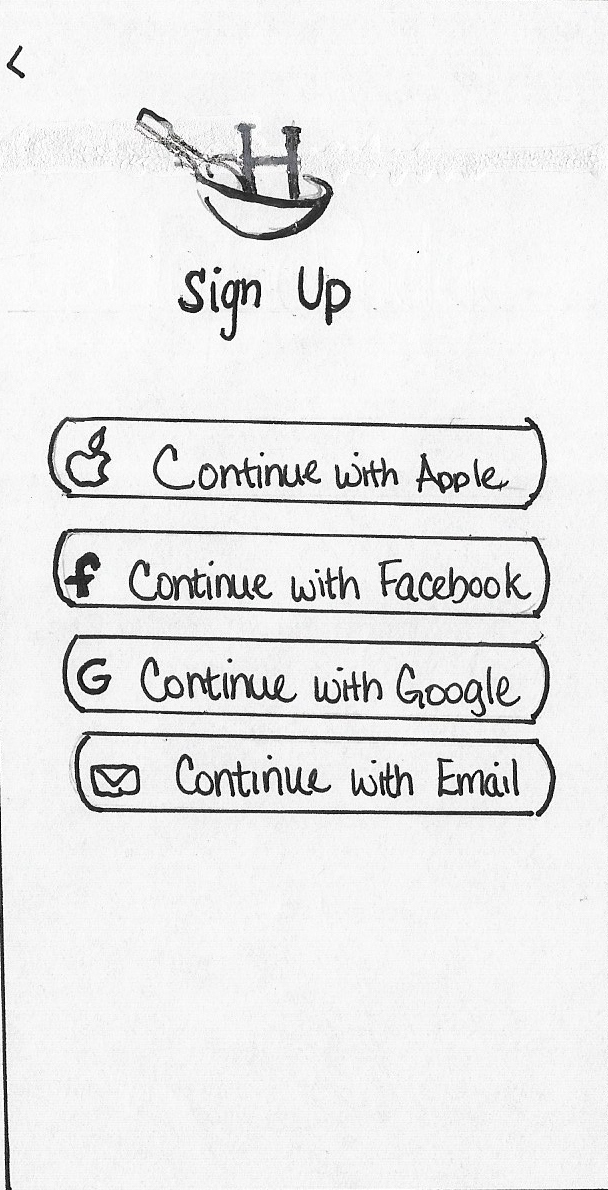 <
H
Sign Up
Continue with Apple
f Continue with Facebook
G Continue with Google
Continue with Email